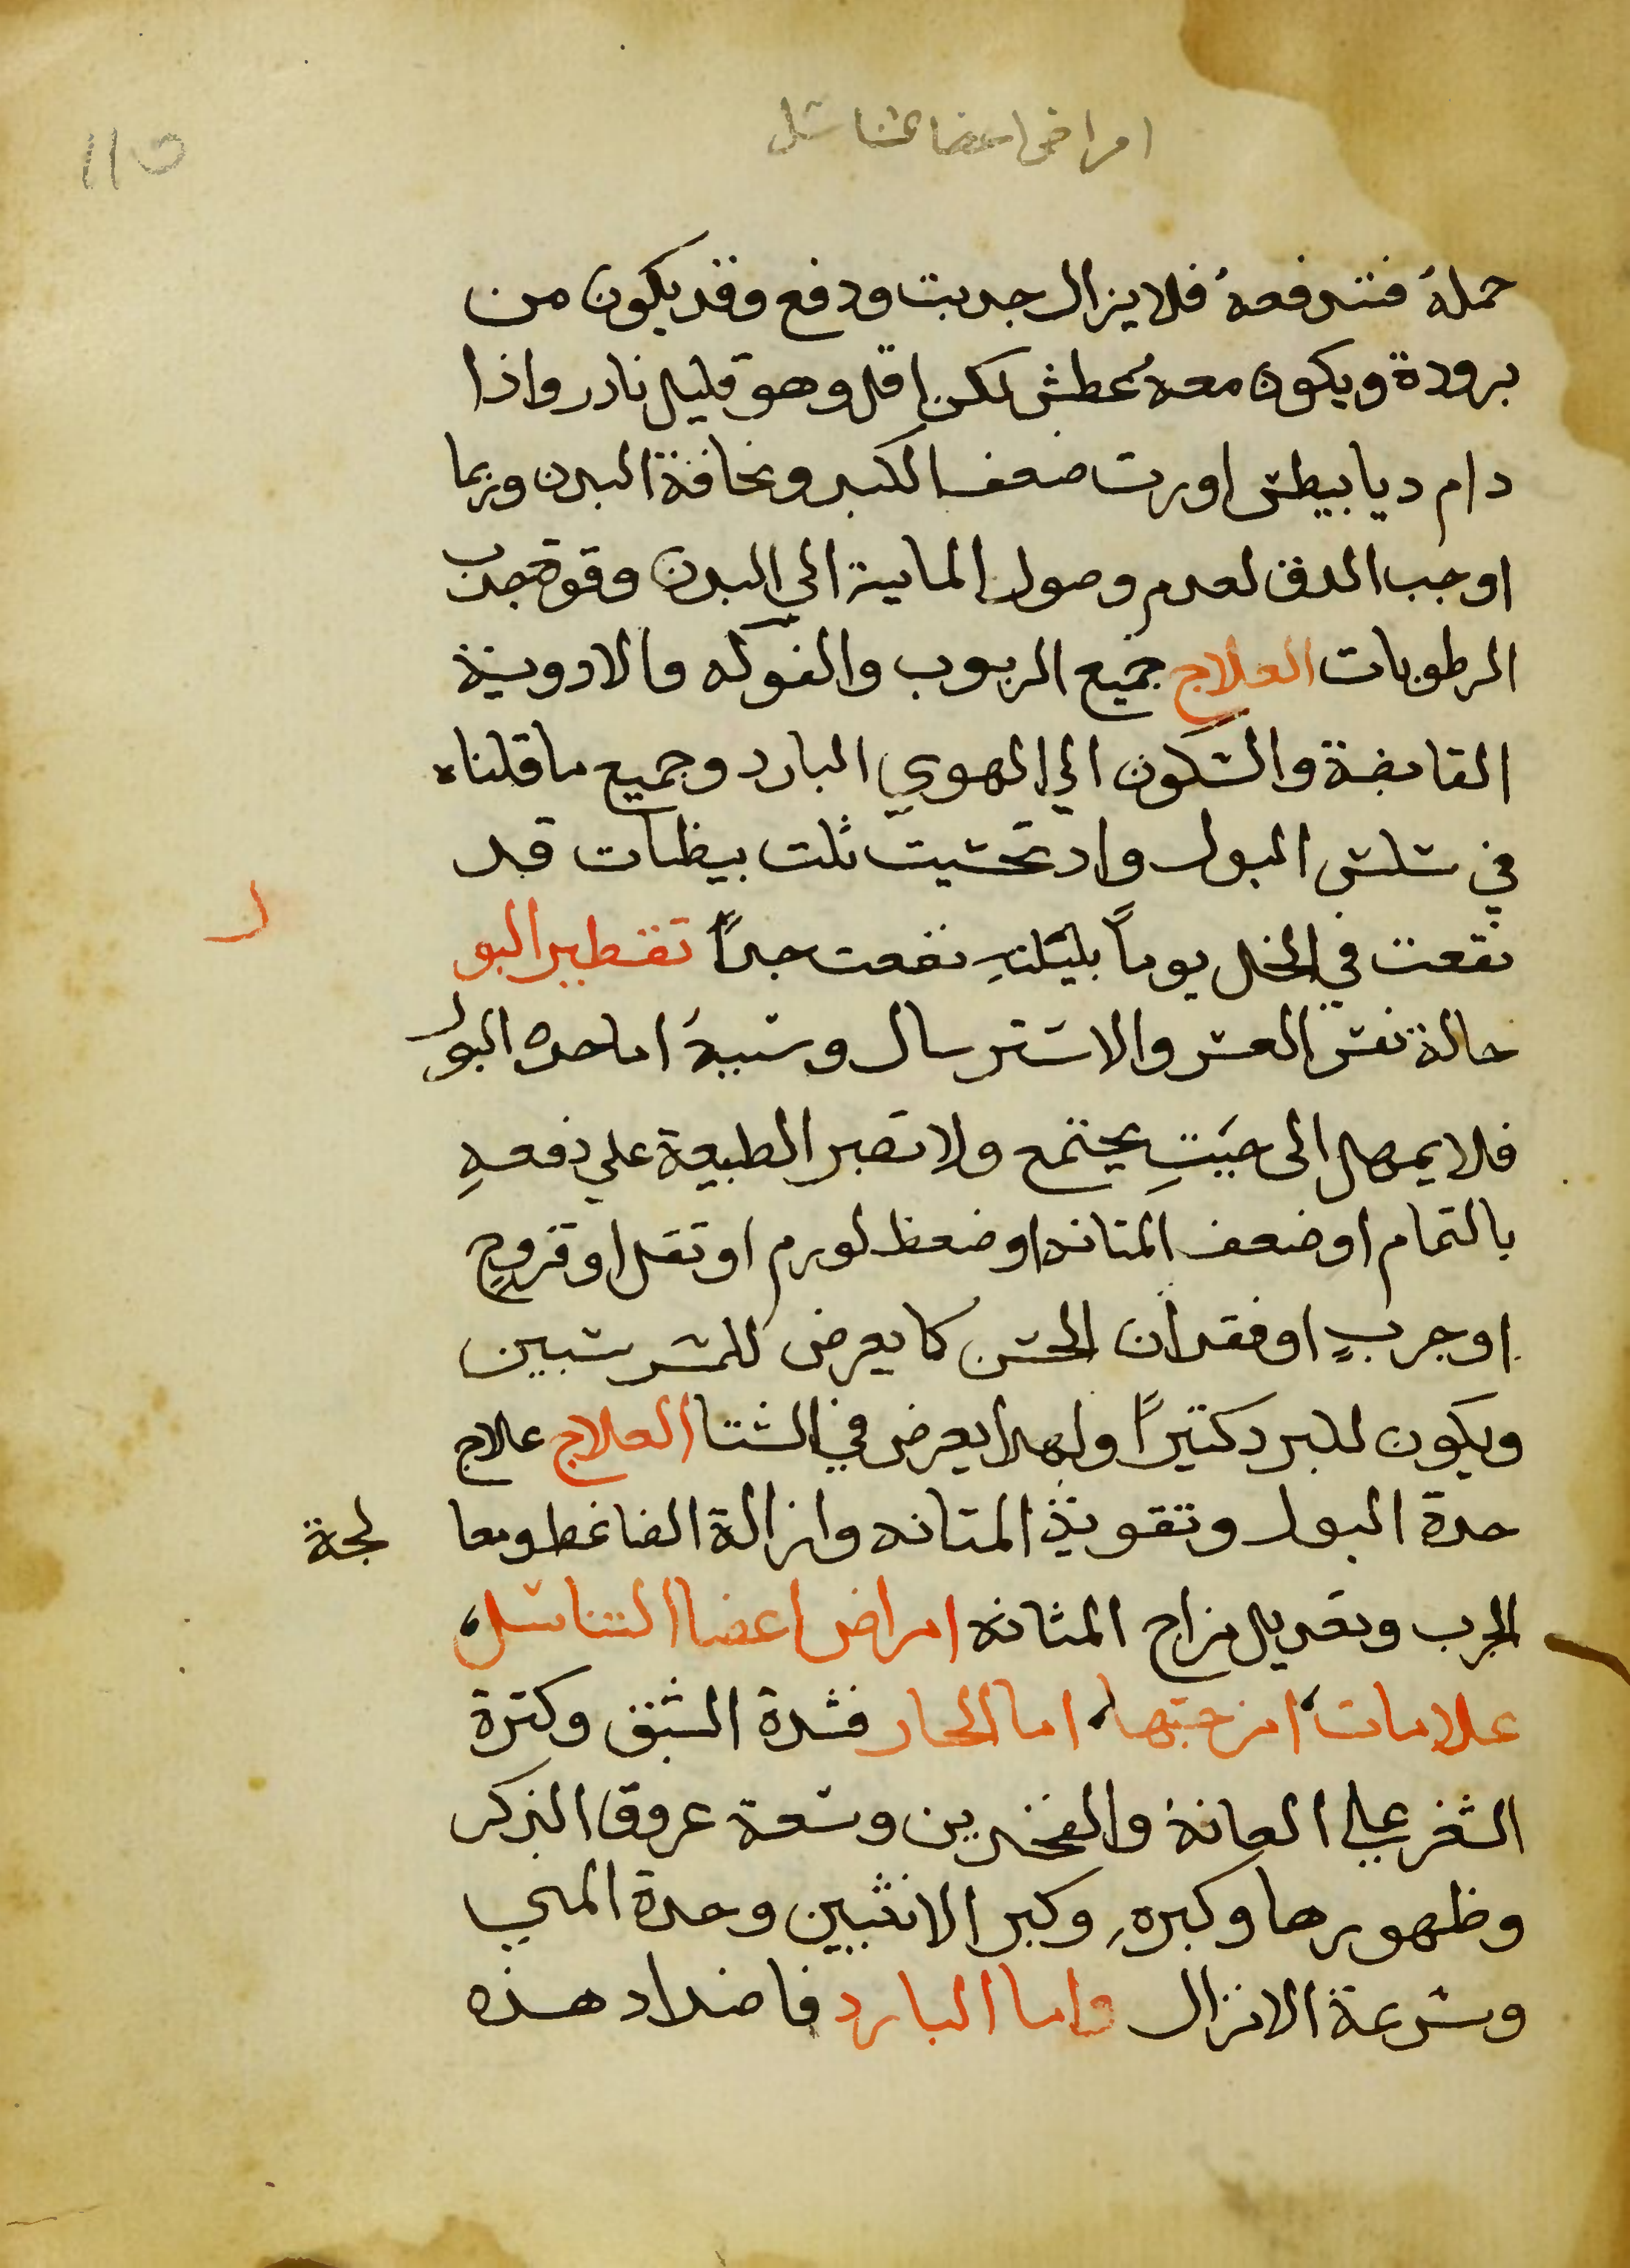 امراض اعضا تناسل
110
حمله فتدفعه فلا يزال جدبت ودفع وقد يكون من
برودة ويكون معه عطش لكن اقل وهو قليل نادر واذا
دام ديابيطس اورت ضعف الكبد ونحافة البدن وربما
اوجب الدق لعدم وصول الماية الي البدن وقوة جدب
الرطوبات العلاج جميع الربوب والفوكه والادوية
القابضة والسكون الي الهوي البارد وجميع ما قلناه
في سلس البول واد تحسيت ثلت بيظات قد
نقعت في الخل يوماً بليلتهِ نفعت جداً تقطير البو
ل
حالة نفس العسر والاسترسال وسببهُ اما حده البول
فلا يمهل الى حيتِ يجتمع ولا تصبر الطبيعة علي دفعهِ
بالتمام او ضعف المتانه او ضعظ لورم او تقل او قروحٍ
او جربٍ او فقدان الحس كما يعرض للمسرسبين
ويكون للبرد كتيراً ولهدا يعرض في الشتا العلاج علاج
حدة البول وتقوية المتانه وازالة الضاغط ومعا لجة
الجرب وتعديل مزاج المثانه امراض اعضا التناسل،
علامات، امزجتها، اما الحار فشدة الشبق وكترة
الشغر علي العانة والفخدين وسعة عروق الذكر
وظهورها وكبرهِ وكبر الانثيين وحدة المني
وسرعة الانزال واما البارد فاضداد هذه